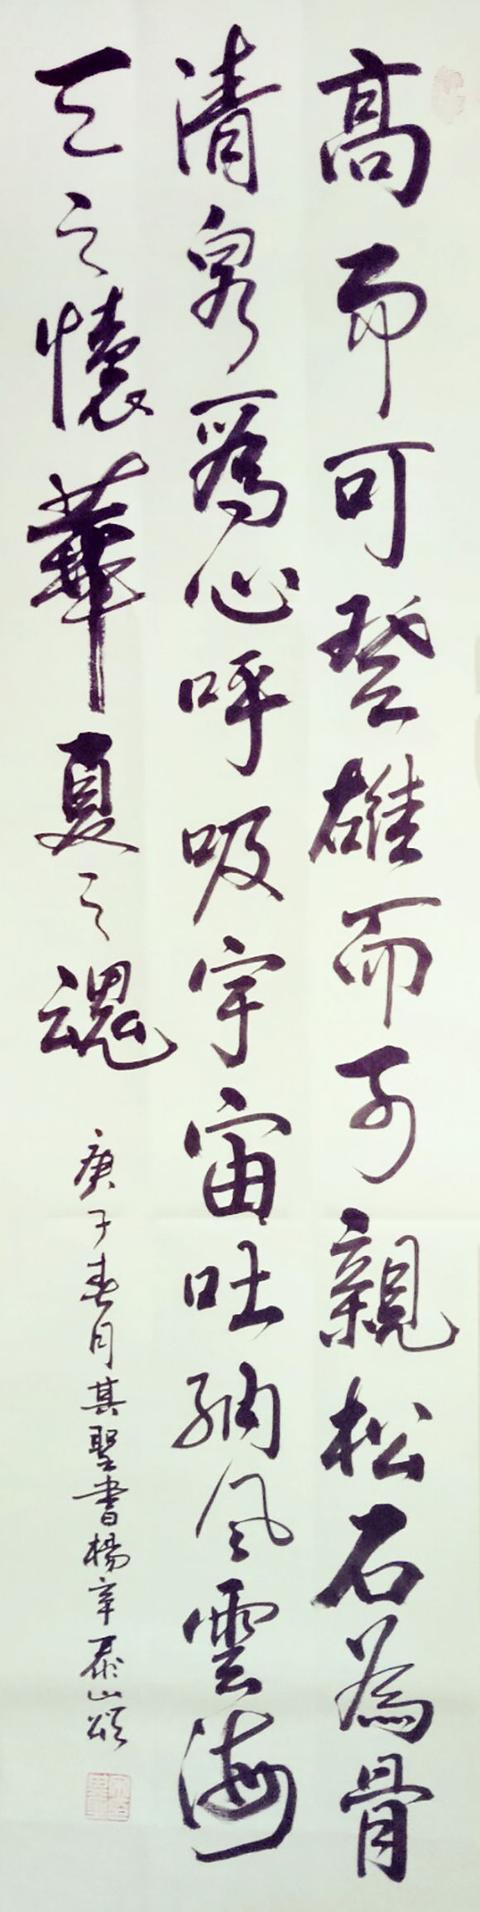 高而可登雄而可親松石為骨
清泉為心呼吸宇宙吐納風雲海
天之懷華夏之魂
庚子春月其聖書楊辛泰山頌